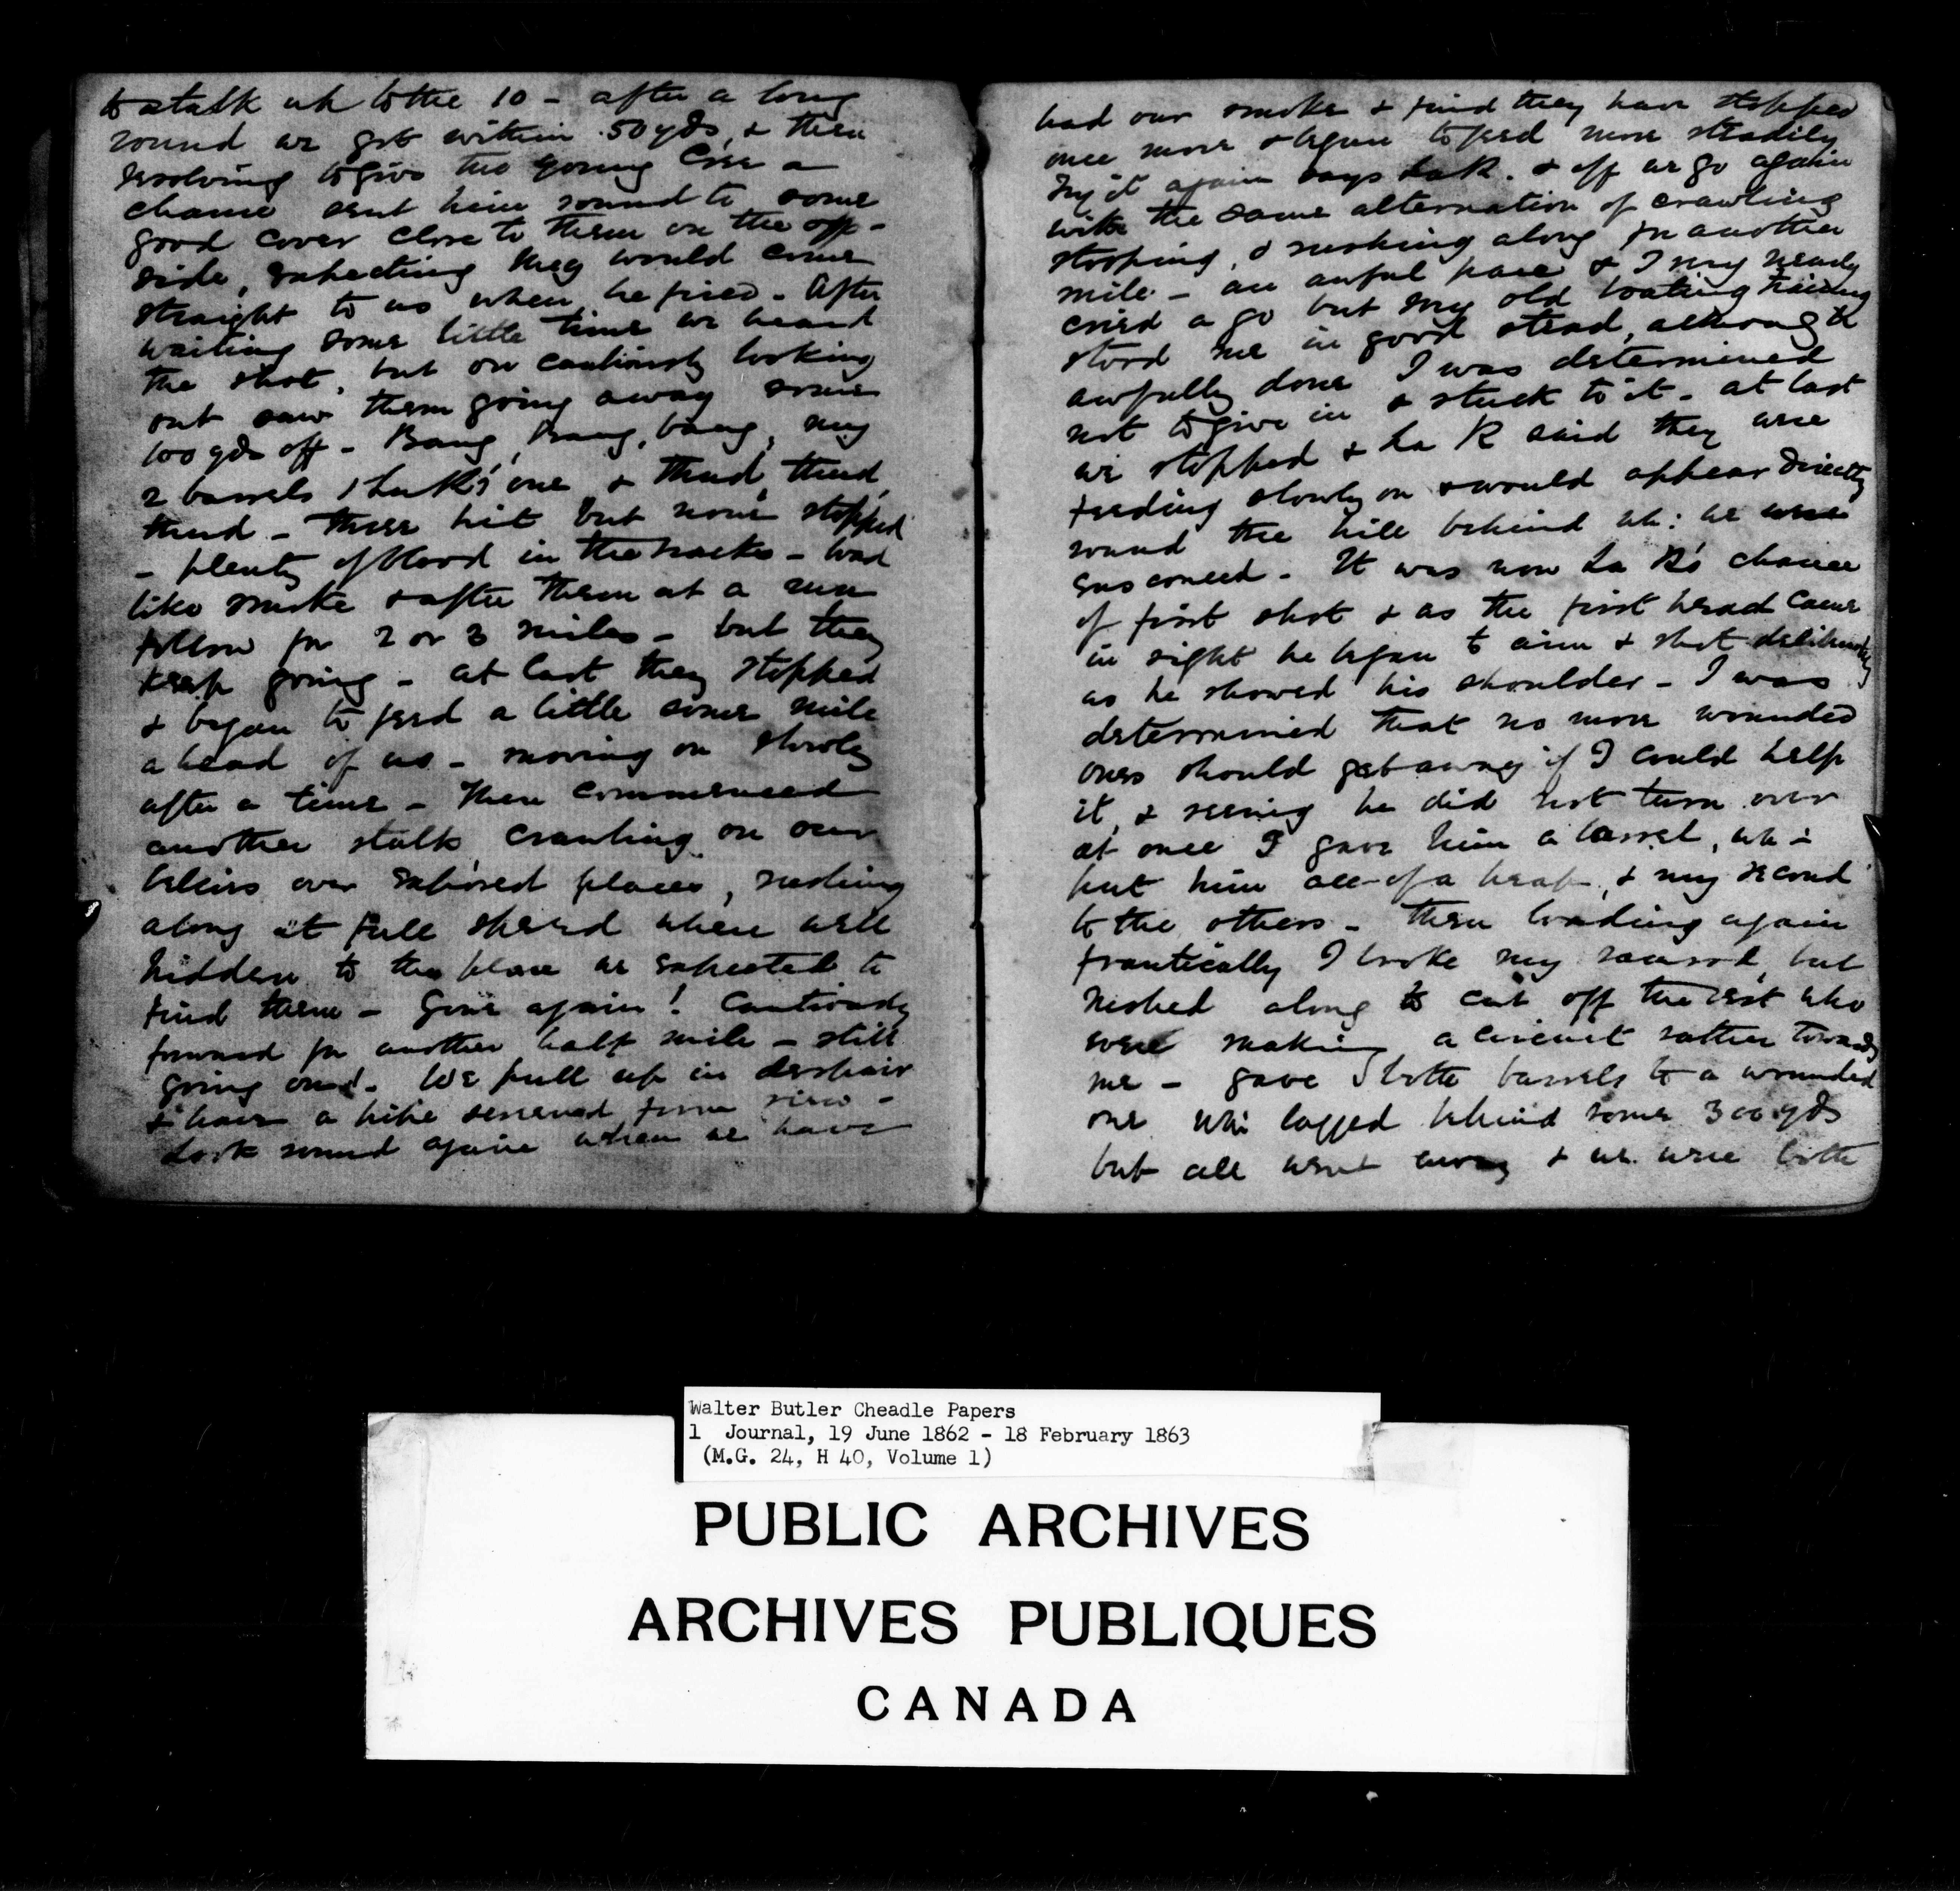 to stalk up to the 10 - after a long
round we got within 50 yds, & then
resolving to give the young Cree a
chance sent him round to some
good cover close to them on the opp-
side, expecting they would come
straight to us when he fired. After
waiting some little time we heard
the shot, but on cautiously looking
out saw them going away some
100 yds off - Bang, bang, bang, my
2 barrels & La R's one & thud, thud,
thud - three hit but none stopped
- plenty of blood in the tracks - load
like smoke & after them at a run
follow for 2 or 3 miles - but they
keep going - at last they stopped
& began to feed a little some mile
ahead of us - moving on slowly
after a time - Then commenced
another stalk crawling on our
bellies over exposed places, rushing
along at full speed where well
hidden to the place we expected to
find them - Gone again! Cautiously
forward for another half mile - still
going on! We pull up in despair
& have a pipe screened from view -
Look round again when we have
had our smoke & find they have stopped
once more & begun to feed more steadily
Try it again says La R. & off we go again
with the same alternation of crawling
stooping, & rushing along for another
mile - an awful pace & I very nearly
cried a go but my old boating training
stood me in good stead, although
awfully done I was determined
not to give in & stuck to it - at last
we stopped & La R said they were
feeding slowly on & would appear directly
round the hill behind wh: we were
ensconced - It was now La R's chance
of first shot & as the first head came
in sight he began to aim & shot deliberately
as he showed his shoulder - I was
determined that no more wounded
ones should get away if I could help
it, & seeing he did not turn over
at once I gave him a barrel, wh:
put him all of a heap, & my second
to the others - Then loading again
frantically I broke my ramrod, but
rushed along to cut off the rest who
were making a circuit rather towards
me - gave both barrels to a wounded
one wh: lagged behind some 300 yds
but all went away & we were both
Walter Butler Cheadle Papers
1 Journal, 19 June 1862 - 18 February 1863
(M.G. 24, H 40, Volume 1)
PUBLIC ARCHIVES
ARCHIVES PUBLIQUES
CANADA